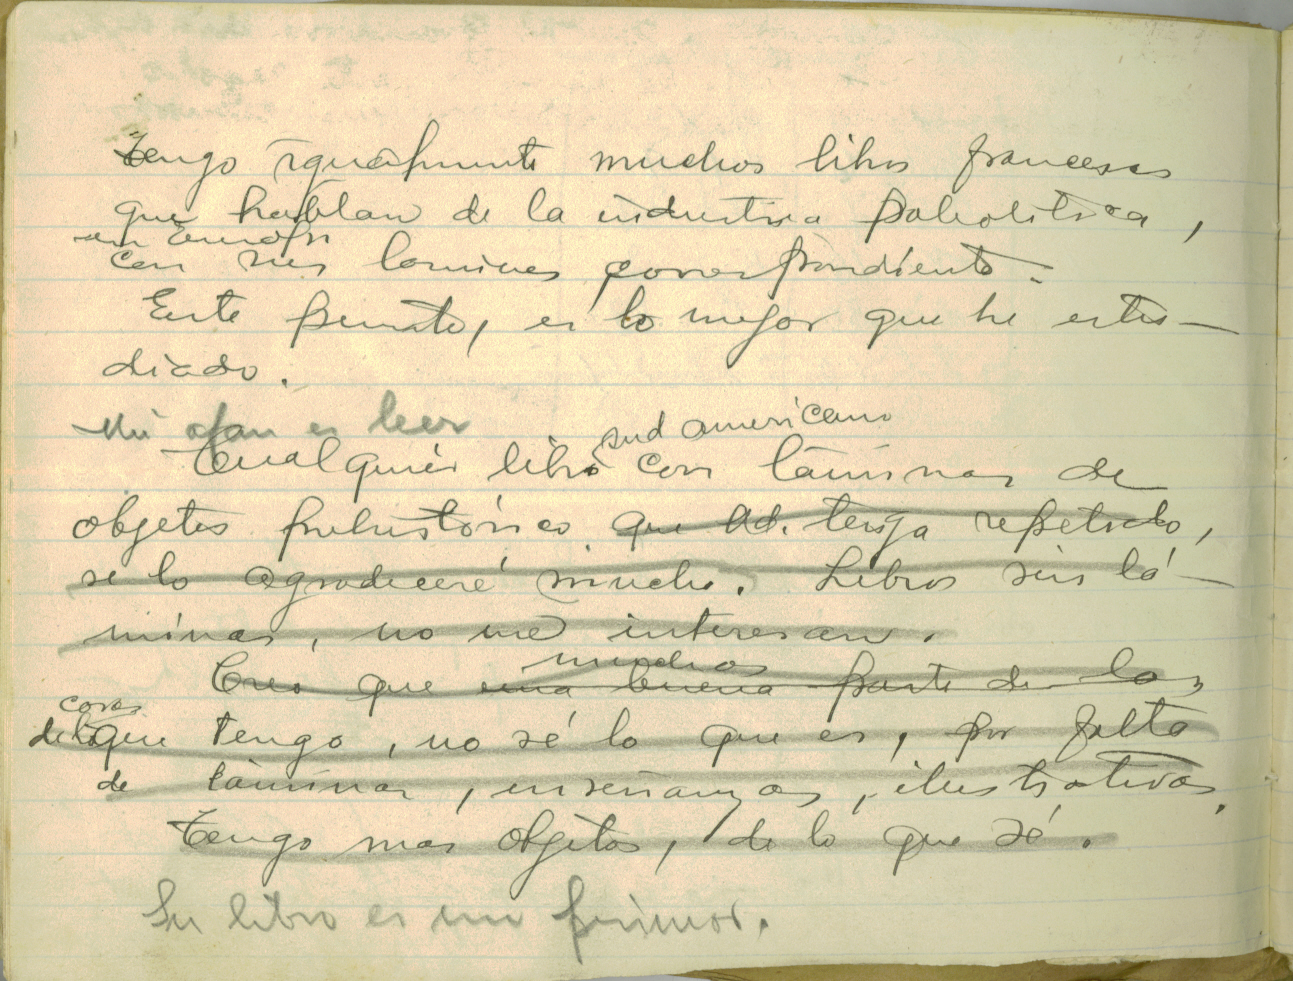 Tengo igualmente muchos libros franceses
que hablan de la industria paleolítica,
en Europa
con sus laminas correspondiente.
Este punto, es lo mejor que hé estu-
diado.
Mi afan es leer
sud americano
Cualquier libro con láminas de
objetos prehistórico que Ud. tenga repetido,
se lo agradeceré mucho. Libros sin lá-
minas, no me interesan.
muchas
Creo que una buena parte de las
cosas
de las que tengo, no sé lo que es, por falta
de láminas, enseñanzas, ilustrativas.
Tengo mas objetos, de lo que sé.
Su libro es un primor.